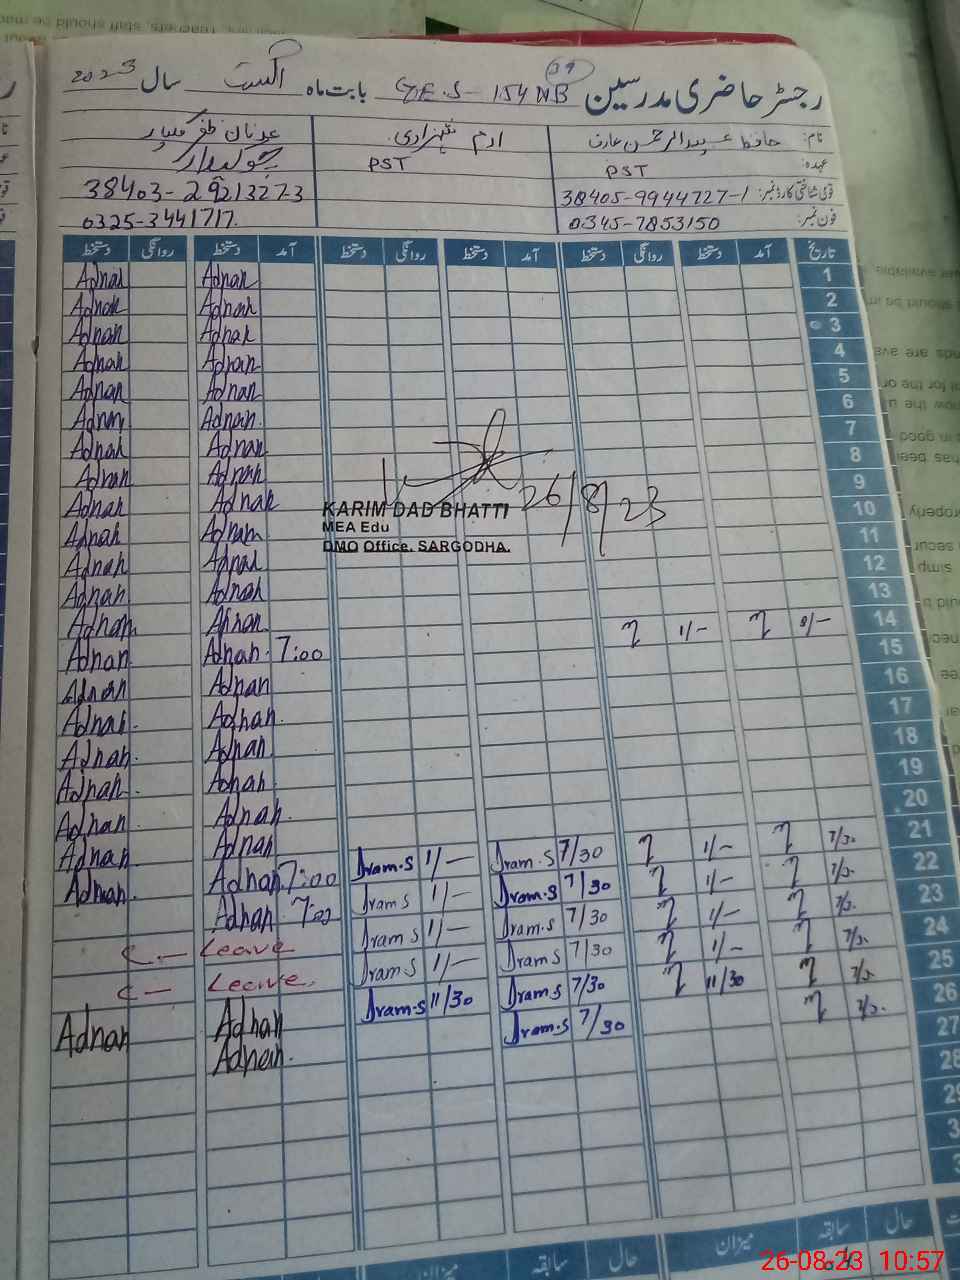 رجسٹر حاضری مدرسین G.E.S - 154 NB بابت ماہ اگست سال 2023
39
نام: حافظ عبیدالرحمن عارف
عہدہ: PST
قومی شناختی کارڈ نمبر: 38405-9944727-1
فون نمبر: 0345-7853150
ارم شہزادی
PST
عدنان ظفر
چوکیدار
0325-3441717.
تاریخ آمد دستخط روانگی دستخط آمد دستخط روانگی دستخط آمد دستخط روانگی دستخط
1 Adnan Adnan
2 Adnan Adnan
3 Adnan Adnan
4 Adnan Adnan
5 Adnan Adnan
6 Adnan. Adnan
7 Adnan Adnan
8 Adnan Adnan
9 Adnan Adnan
10 Adnan Adnan
11 Adnan Adnan
12 Adnan Adnan
13 Adnan Adnan
14 8/- 1/- 7:00 Adnan. Adnan
15 Adnan Adnan
16 Adnan. Adnan.
17 Adnan Adnan.
18 Adnan Adnan.
19 Adnan. Adnan.
20 Adnan Adnan
21 7/30 1/- 7/30 Iram.S 1/- Iram.S 7:00 Adnan Adnan.
22 1/- 7/30 Iram.S 1/- Iram S 7:00 Adnan
23 1/- 7/30 Iram.S 1/- Iram S Leave
24 1/- 7/30 Iram S 1/- Iram S Leave.
25 11/30 7/30 Iram S 11/30 Iram.S Adnan Adnan
26 7/30 Iram.S Adnan.
27
28
KARIM DAD BHATTI
MEA Edu
DMO Office. SARGODHA.
26/8/23
حال سابقہ میزان حال سابقہ میزان
26-08-23 10:57